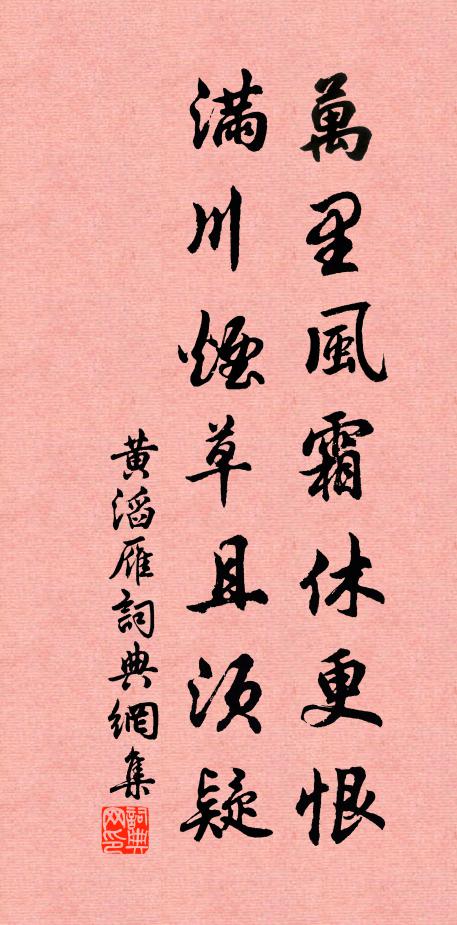 萬里風霜休更恨
滿川煙草且須疑
黃滔雁詞典網集
詞典网印